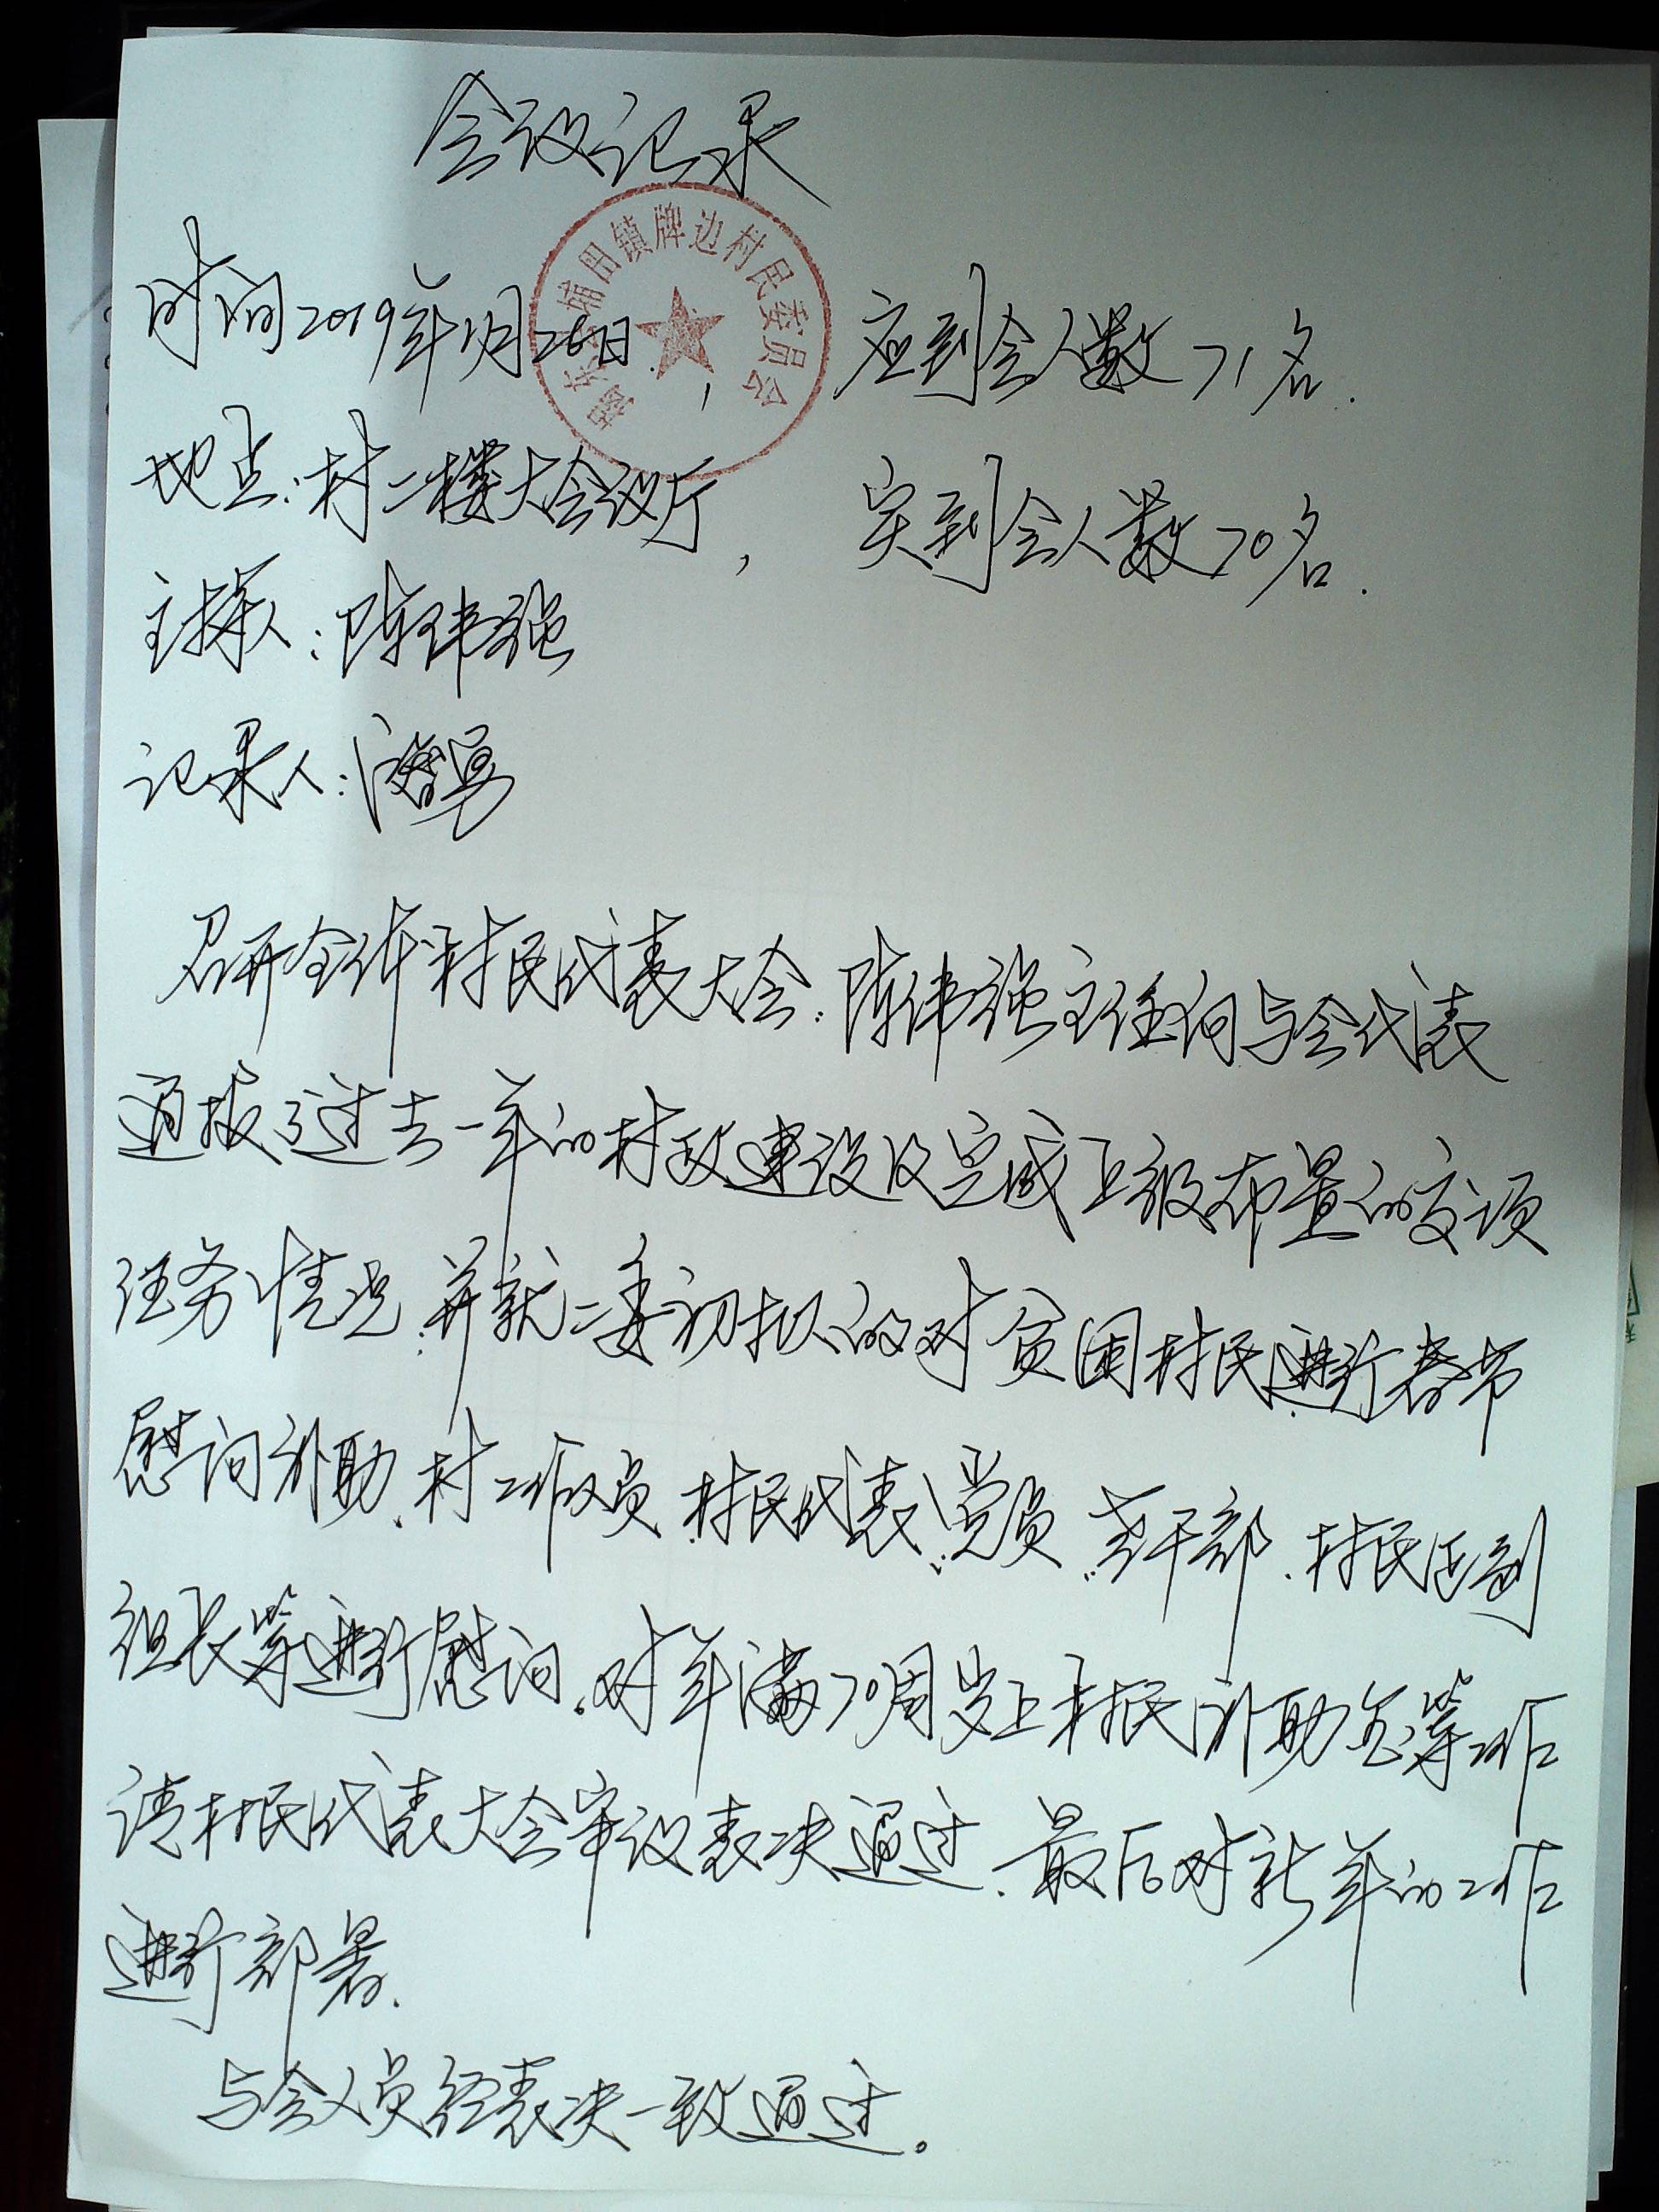 会议记录
揭东区埔田镇牌边村民委员会
时间2019年1月26日, 应到会人数71名.
地点:村二楼大会议厅, 实到会人数70名.
主持人:陈伟强
记录人:
召开全体村民代表大会:陈伟强主任向与会代表
通报了过去一年的村政建设及完成上级布置的各项
任务情况.并就二委初拟的对贫困村民进行春节
慰问补助.村工作人员.村民代表.党员.老干部.村民
组长等进行慰问.对年满70周岁上村民补助金等工作
请村民代表大会审议表决通过.最后对新年的工作
进行部署.
与会人员经表决一致通过。